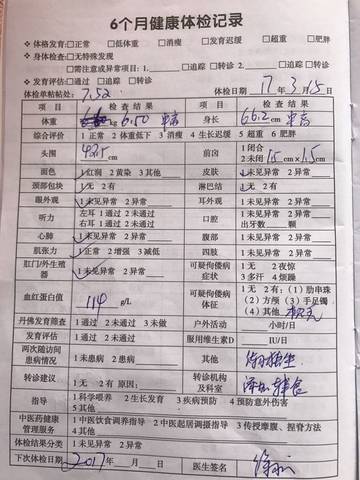 6个月健康体检记录
体格发育:□正常 □低体重 □消瘦 □发育迟缓 □超重 □肥胖
身体检查:□无特殊发现
□需注意或异常项目:1. □追踪 □转诊 2. □追踪 □转诊
发育评估:□通过 □追踪 □转诊
体检单粘帖处: 7.52 体检日期 17年3月15日
项目 检查结果 项目 检查结果
体重 6.50 kg 身长 66.2 cm
综合评价 1 正常 2 体重低下 3 消瘦 4 生长迟缓 5 超重 6 肥胖
头围 42.5 cm 前囟 1 闭合 2 未闭 1.5 cm×1.5 cm
面色 1 红润 2 黄染 3 其他 皮肤 1 未见异常 2 异常
颈部包块 1 无 2 有 淋巴结 1 无 2 有
眼外观 1 未见异常 2 异常 耳外观 1 未见异常 2 异常
听力 左耳 1 通过 2 未通过 右耳 1 通过 2 未通过 口腔 1 未见异常 2 异常 出牙数 颗
心肺 1 未见异常 2 异常 腹部 1 未见异常 2 异常
肌张力 1 正常 2 增强 3 减低 四肢 1 未见异常 2 异常
肛门/外生殖器 1 未见异常 2 异常 可疑佝偻病症状 1 无 2 夜惊 3 多汗 4 烦躁
血红蛋白值 114 g/L 可疑佝偻病体征 1 无 2 有:(1)肋串珠 (2)方颅 (3)手足镯 (4)其他 枕秃
丹佛发育筛查 1 通过 2 未通过 3 未做 户外活动 小时/日
发育评估 1 通过 2 未通过 服用维生素D IU/日
两次随访间患病情况 1 未患病 2 患病 其他
转诊建议 1 无 2 有 原因: 转诊机构及科室 添加辅食
指导 1 科学喂养 2 生长发育 3 疾病预防 4 预防意外伤害 5 其他
中医药健康管理服务 1 中医饮食调养指导 2 中医起居调摄指导 3 传授摩腹、捏脊方法 4 其他
体检结果分类 1 未见异常 2 异常
下次体检日期 2017年 月 日 医生签名